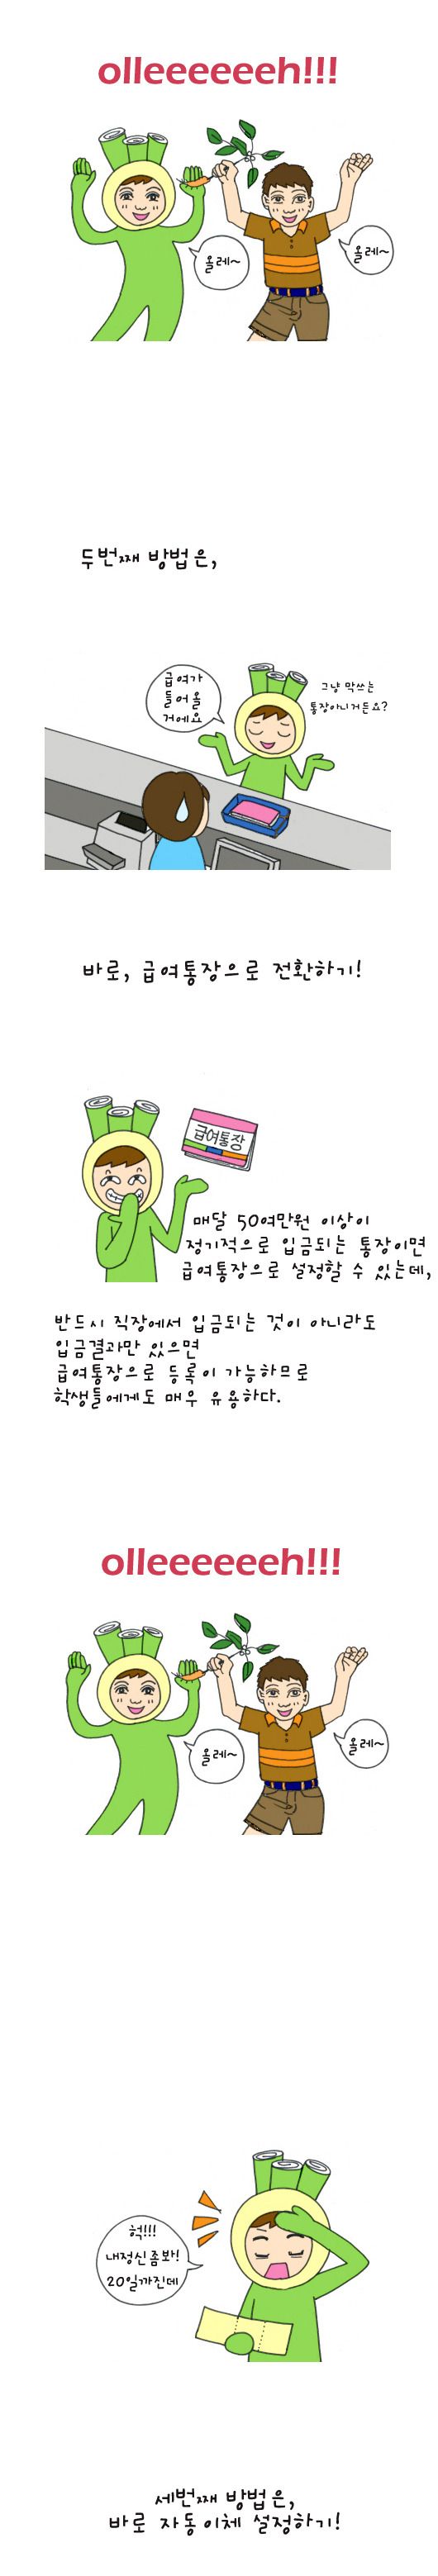 olleeeeeeh!!!
올레~
올레~
두번째 방법은,
급여가
들어올
거에요
그냥 막쓰는
통장아니거든요?
바로, 급여통장으로 전환하기!
급여통장
매달 50여만원 이상이
정기적으로 입금되는 통장이면
급여통장으로 설정할 수 있는데,
반드시 직장에서 입금되는 것이 아니라도
입금결과만 있으면
급여통장으로 등록이 가능하므로
학생들에게도 매우 유용하다.
olleeeeeeh!!!
올레~
올레~
헉!!!
내정신좀봐!
20일까진데
세번째 방법은,
바로 자동이체 설정하기!